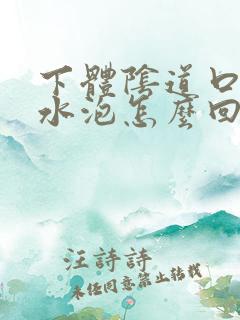 下體陰道口
水泡怎麼回
汪詩詩
未经同意禁止转载